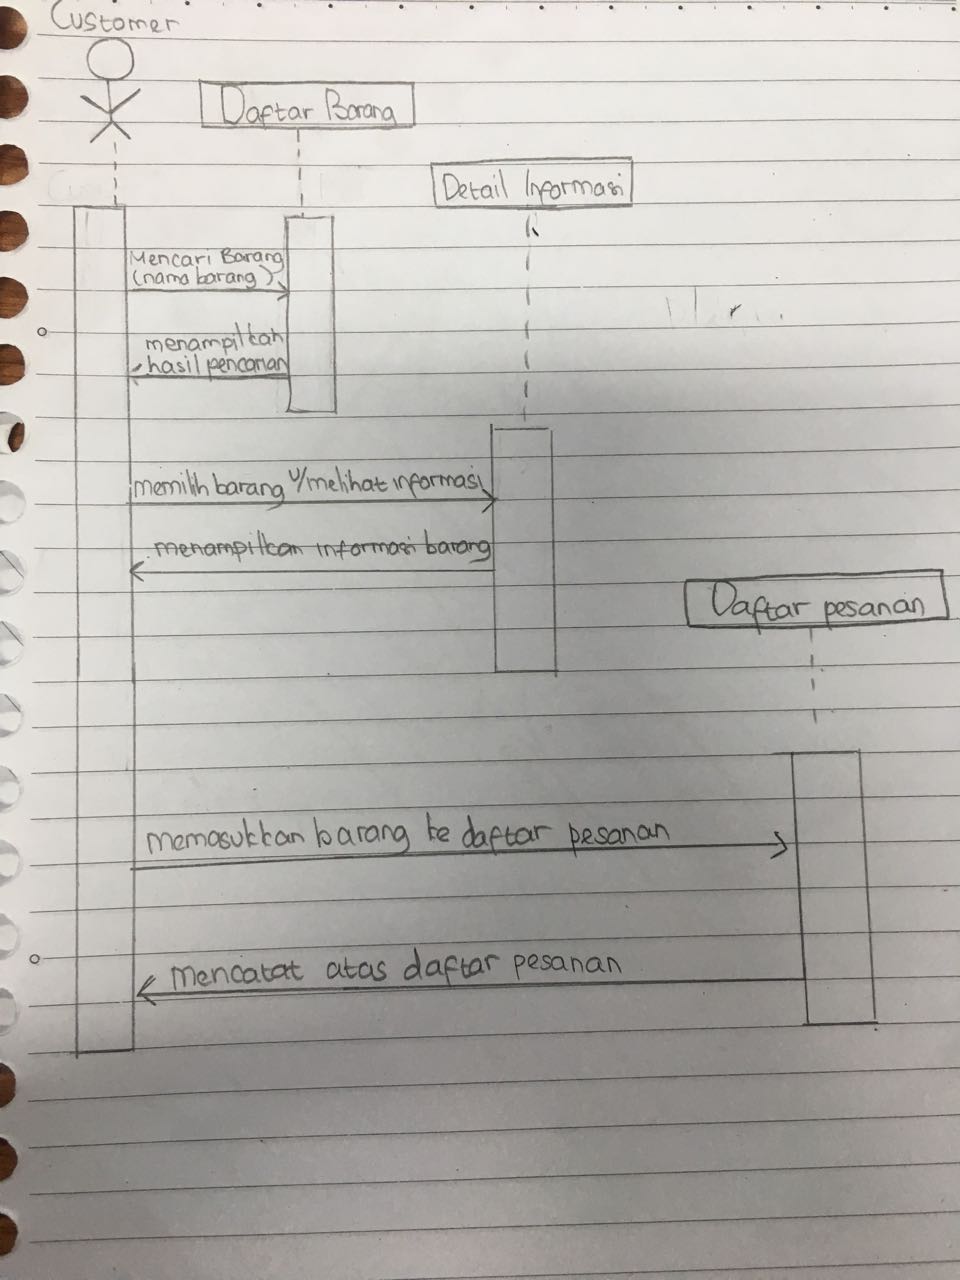 Customer
Daftar Barang
Detail Informasi
Mencari Barang
(nama barang)
menampilkan
hasil pencarian
memilih barang u/melihat informasi
menampilkan informasi barang
Daftar pesanan
memasukkan barang ke daftar pesanan
mencatat atas daftar pesanan